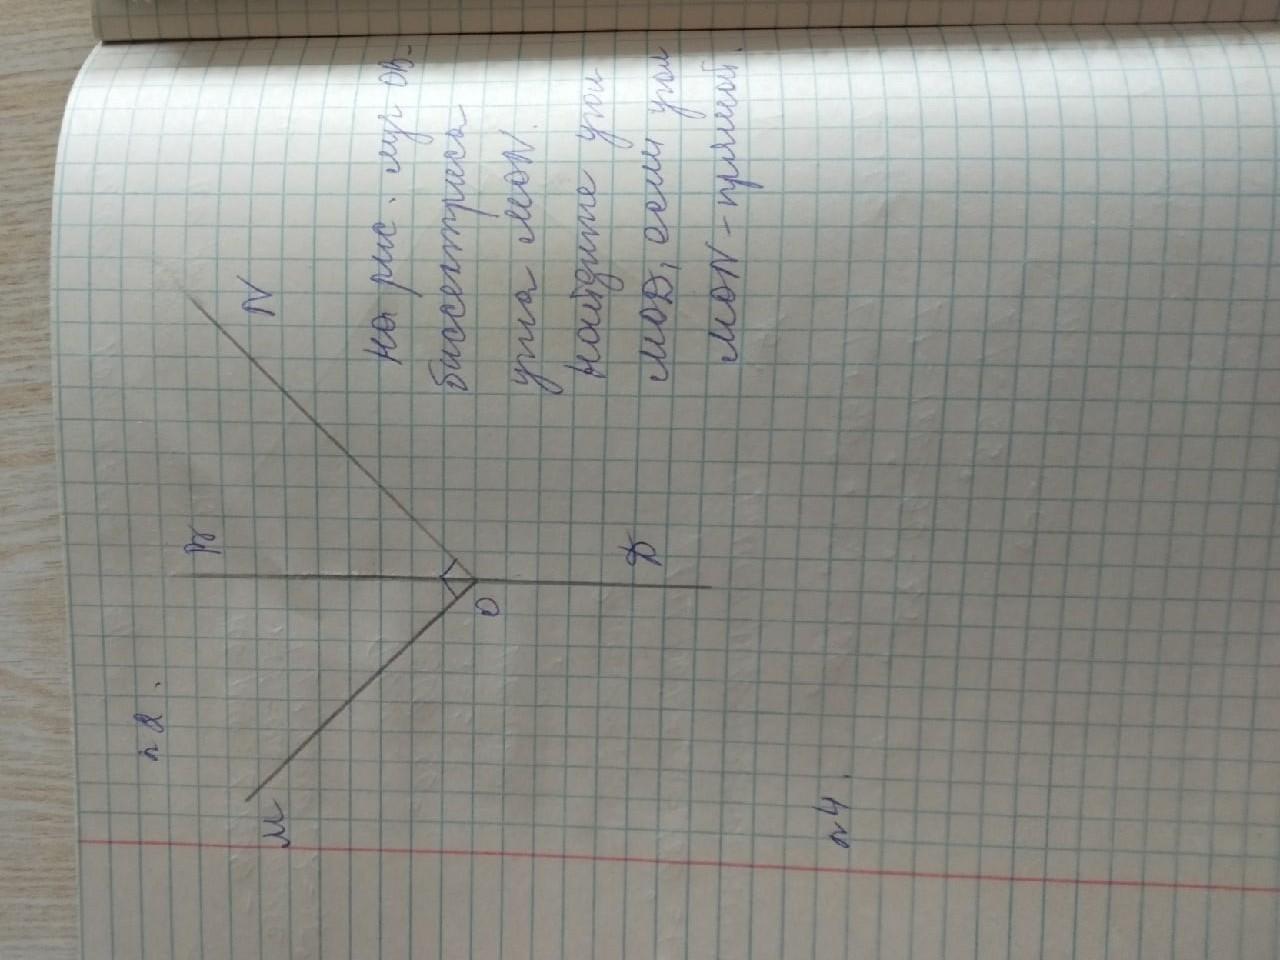 n 2.
В
M
N
O
D
на рис. луч ОВ-
биссектриса
угла MON.
найдите угол
МОD, если угол
MON - прямой.
n 4.